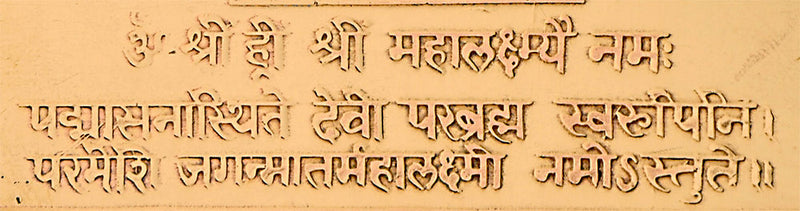 ॐ श्री ह्रीं श्री महालक्ष्म्यै नमः
पद्मासनास्थिते देवी परब्रह्म स्वरूपिणि।
परमेशि जगन्मातर्महालक्ष्मी नमोऽस्तुते॥